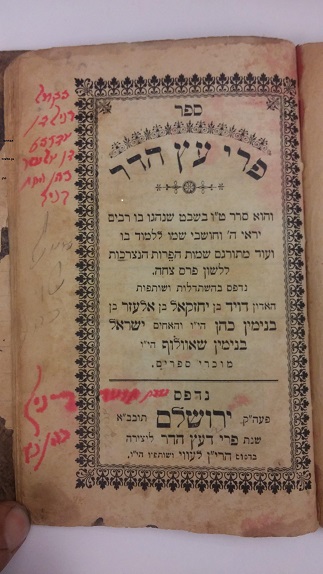 ספר
פרי עץ הדר
והוא סדר ט"ו בשבט שנהגו בו רבים
יראי ה' וחושבי שמו ללמוד בו
ועוד מתורגם שמות הפרות הנצרכות
ללשון פרס צחה.
נדפס בהשתדלות ושותפות
האדון דויד בן יחזקאל בן אלעזר בן
בנימין כהן הי"ו והאחים ישראל
בנימין שאוולוף הי"ו
מוכרי ספרים.
נדפס
פעה"ק ירושלם תובב"א
שנת פרי דעץ הדר ליצירה
בדפוס הרי"ן לעווי ושותפיו הי"ו.